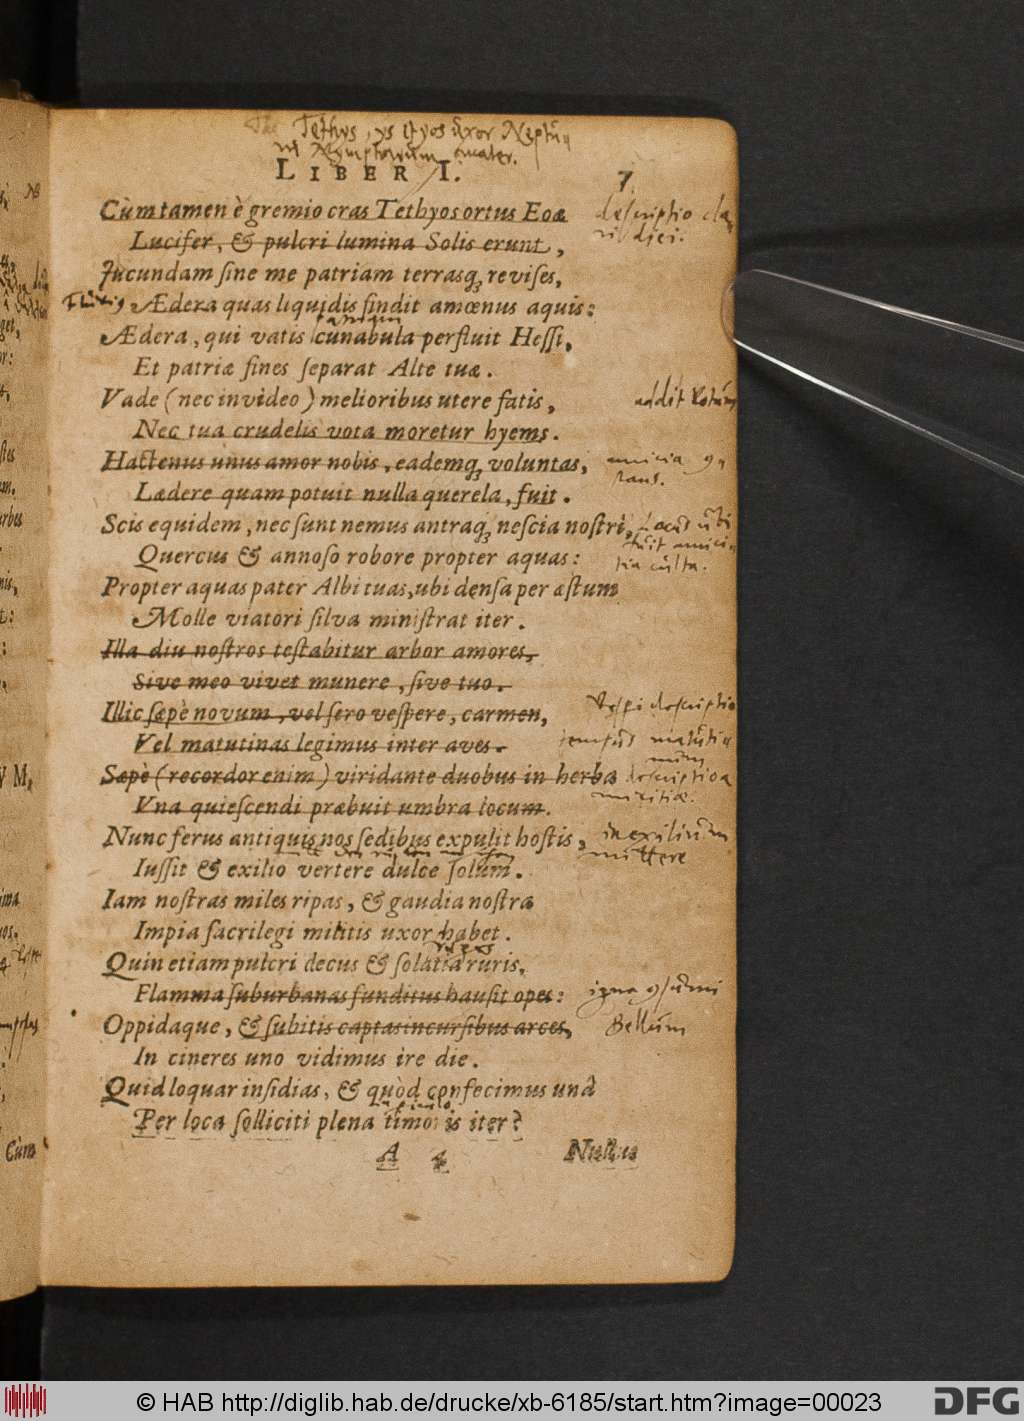 Tethys, ys et yos uxor Neptu
ni Nympharum mater.
LIBER I. 7
Cùm tamen è gremio cras Tethyos ortus Eoæ
descriptio cla
ri diei.
Lucifer, & pulcri lumina Solis erunt,
Jucundam sine me patriam terrasq; revises,
Fluvius
Ædera quas liquidis findit amœnus aquis:
patriam
Ædera, qui vatis cunabula perfluit Hessi,
Et patriæ fines separat Alte tuæ.
Vade (nec invideo) melioribus utere fatis,
addit votum
Nec tua crudelis vota moretur hyems.
Hactenus unus amor nobis, eademq; voluntas,
Lædere quam potuit nulla querela, fuit.
Scis equidem, nec sunt nemus antraq; nescia nostri,
Locus ubi
fuit amici
tia culta.
Quercus & annoso robore propter aquas:
Propter aquas pater Albi tuas, ubi densa per æstum
Molle viatori silva ministrat iter.
Illa diu nostros testabitur arbor amores,
Sive meo vivet munere, sive tuo.
Illic sæpè novum, vel sero vespere, carmen,
Vesperi descriptio
Vel matutinas legimus inter aves.
tempus matuti
num
Sæpè (recordor enim) viridante duobus in herba
descriptio
amicitiæ.
Una quiescendi præbuit umbra locum.
Nunc ferus antiquis nos sedibus expulit hostis,
in exilium
mittere
Iussit & exilio vertere dulce solum.
Iam nostras miles ripas, & gaudia nostra
Impia sacrilegi militis uxor habet.
Quin etiam pulcri decus & solatia ruris,
Flamma suburbanas funditus hausit opes:
igne
Oppidaque, & subitis captas incursibus arces,
Bellum
In cineres uno vidimus ire die.
Quid loquar insidias, & quòd confecimus unà
Per loca solliciti plena timoris iter?
A 4 Nullus
Cùm
© HAB http://diglib.hab.de/drucke/xb-6185/start.htm?image=00023
DFG